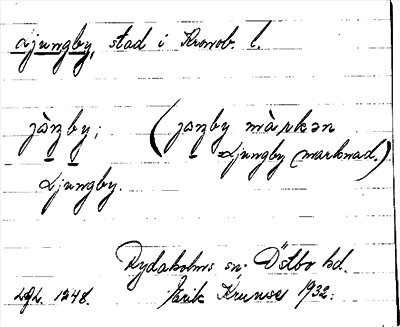 Ljungby, stad i Kronob. l.
jàṉḇy; (jaṉby màrkən
=Ljungby (marknad.)
Ljungby.
Rydaholms sn; Östbo hd.
1248. Erik 1932.